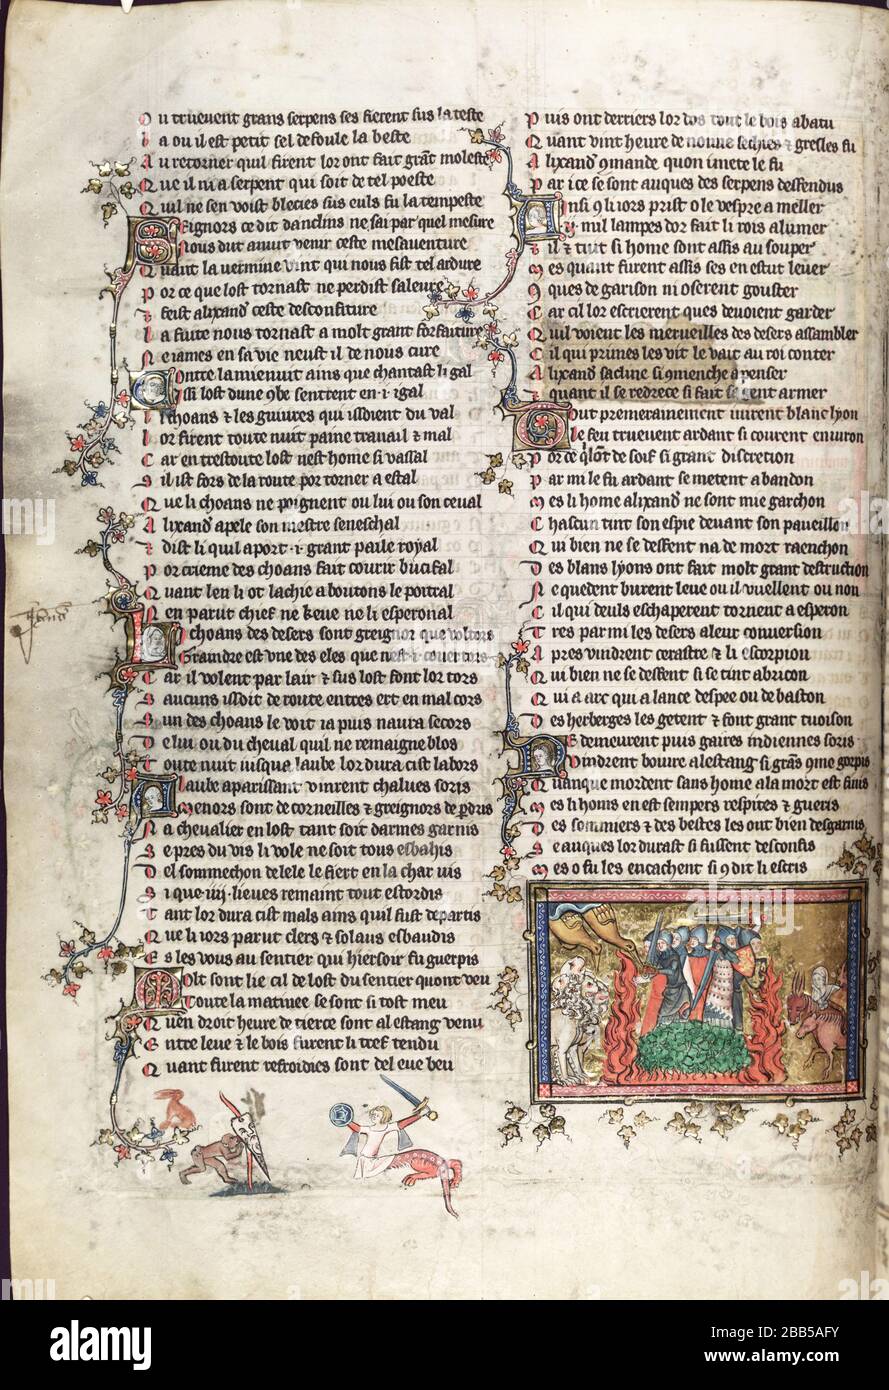 O u truevent grans serpens ses fierent sus la teste
L a ou il est petit sel defoule la beste
A u retorner quil firent lor ont fait grāt moleste
Q ue il ni a serpent qui soit de tel poeste
Q uil ne sen voist blecies sus euls fu la tempeste
S eignors ce dit danclins ne sai par quel mesure
N ous dut anuit venir ceste mesaventure
Q uant la vermine vint qui nous fist tel ardure
P or ce que lost tornast ne perdist saleure
⁊ feist alixand ceste desconfiture
L a fuite nous tornast a molt grant forfaiture
N e iames en sa vie neust il de nous cure
C ontre la mienuit ains que chantast li gal
I ssi lost dune 9be sentrent en ·i· igal
L i choans ⁊ les guivres qui issoient du val
L or firent toute nuit paine travail ⁊ mal
C ar en trestoute lost nest home si vassal
S il ist fors de la route por torner a estal
Q ue li choans ne poignent ou lui ou son ceval
A lixand apele son mestre seneschal
⁊ dist li quil aport ·i· grant paile royal
P or crieme des choans fait couvrir bucifal
Q uant len li ot lachie a boutons le poitral
N en parut chief ne keue ne li esperonal
L i choans des desers sont greignor que voltors
Graindre est une des eles que
C ar il volent par lair ⁊ sus lost font lor tors
S aucuns issoit de route entres ert en mal cors
S un des choans le voit ia puis naura secors
D e lui ou du cheval quil ne remaigne blos
T oute nuit iusqua laube lor dura cist labors
A laube aparissant vinrent chalves soris
Menors sont de corneilles ⁊ greignors de pdris
N a chevalier en lost tant soit darmes garnis
S e pres du vis li vole ne soit tous esbahis
D el sommechon delele le fiert en la char vis
S i que ·iiij· lieues remaint tout estordis
T ant lor dura cist mals ains quil fust departis
Q ue li iors parut clers ⁊ solaus esbaudis
E s les vous au sentier qui hier soir fu guerpis
M olt sont lie cil de lost du sentier quont veu
Toute la matinee se sont si tost meu
Q uen droit heure de tierce sont al estang venu
E ntre leve ⁊ le bois furent li tref tendu
Q uant furent refroidies sont del eve beu
P uis ont derriers lor dos tout le bois abatu
Q uant vint heure de nonne seches ⁊ gresles fu
A lixand 9mande quon i mete le fu
P ar ice se sont auques des serpens deffendus
A insi 9 li iors prist o le vespre a meller
mil lampes dor fait li rois alumer
⁊ il ⁊ tuit si home sont assis au souper
M es quant furent assis ses en estut lever
O ques de garison ni oserent gouster
C ar cil lor escrierent ques devoient garder
Q uil voient les merveilles des desers assambler
C il qui primes les vit le vait au roi conter
A lixand sacline si 9menche a penser
⁊ quant il se redrece si fait se gent armer
T out premerainement vinrent blanc lyon
Le feu truevent ardant si courent environ
P or ce qlōt de soif si grant discretion
P ar mi le fu ardant se metent a bandon
M es li home alixand ne sont mie garchon
C hascun tint son espie devant son paveillon
Q ui bien ne se deffent na de mort raenchon
D es blans lyons ont fait molt grant destruction
N e quedent burent leve ou il vuellent ou non
C il qui deuls eschaperent tornent a esperon
T res par mi les desers a leur conversion
A pres vindrent cerastre ⁊ li escorpion
Q ui bien ne se deffent si se tint a bricon
Q ui a arc qui a lance despee ou de baston
D es herberges les getent ⁊ font grant tuoison
N e demeurent puis gaires indiennes soris
Vindrent boivre alestang si grās 9me gorpis
Q uanque mordent sans home a la mort est finis
M es li homs en est sempers respites ⁊ gueris
D es sommiers ⁊ des bestes les out bien desgarnis
S e auques lor durast si fussent desconfis
M es o fu les encachent si 9 dit li escris
alamy
Image ID: 2BB5AFY
www.alamy.com